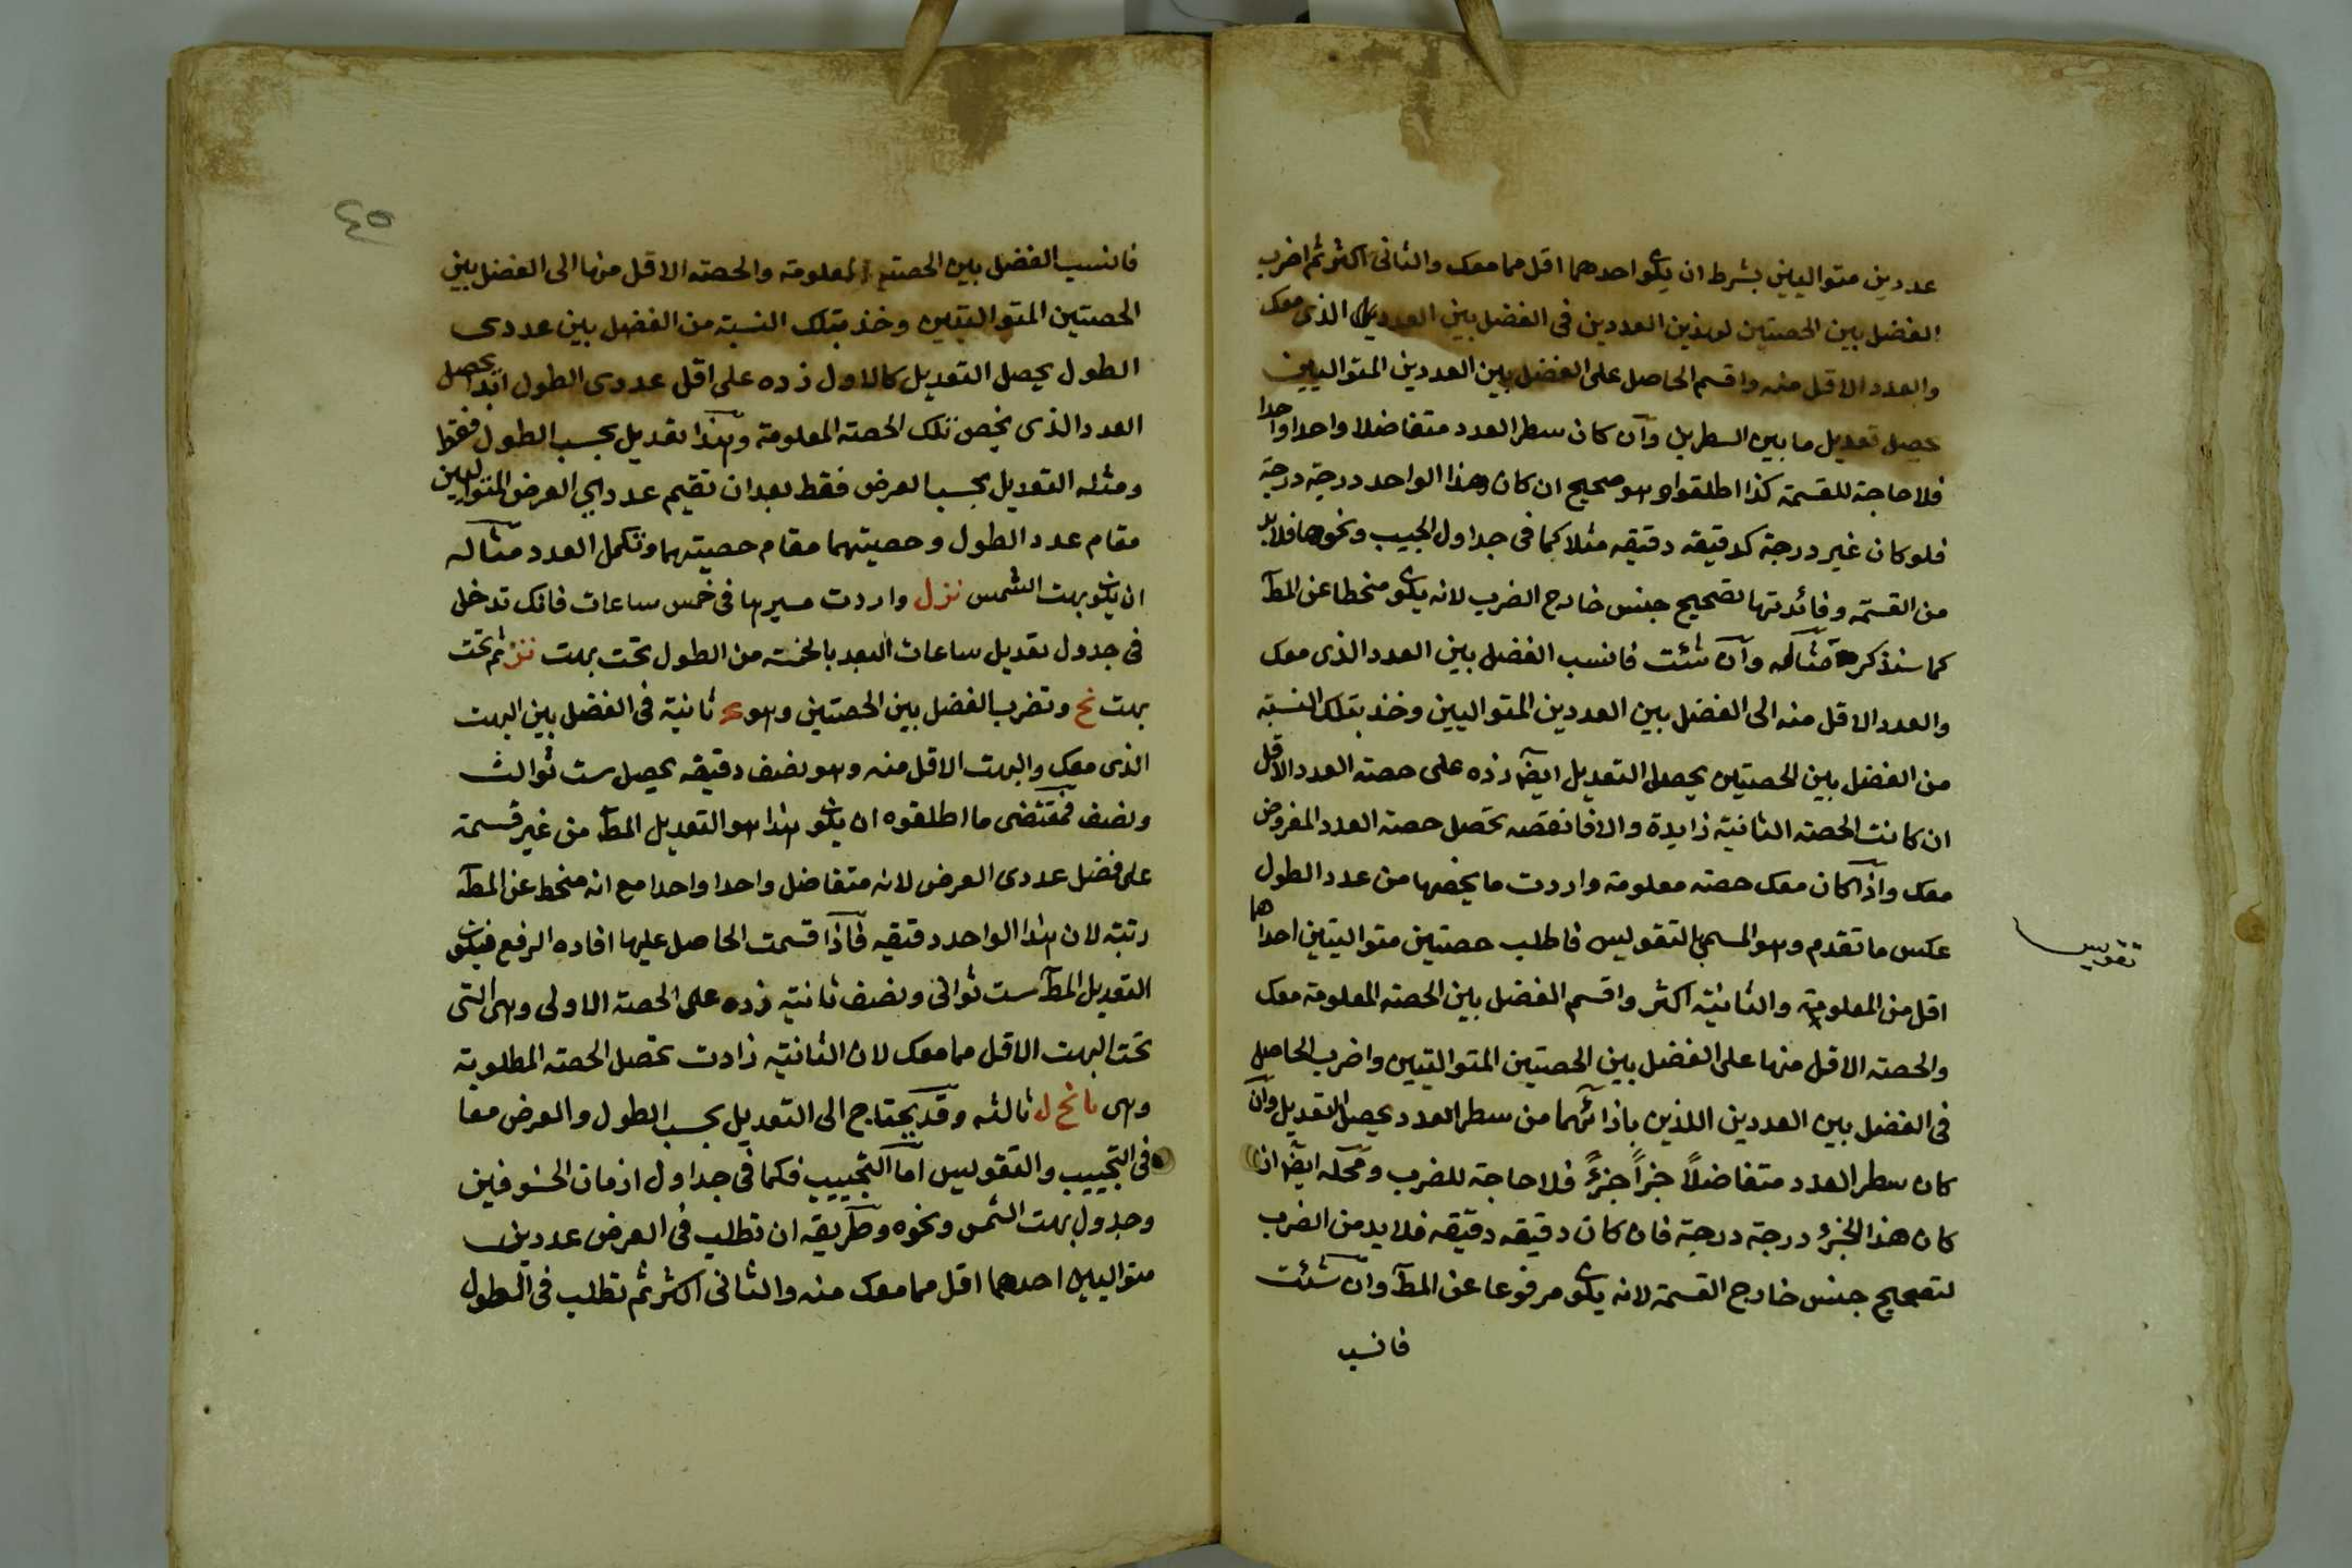 عددين متواليين بشرط ان يكو احدهما اقل مما معك والثانى اكثر ثم اضرب
الفضل بين الحصتين لهذين العددين فى الفضل بين العدد الذى معك
والعدد الاقل منه واقسم الحاصل على الفضل بين العددين المتواليين
يحصل تعديل ما بين السطرين وآن كان سطر العدد متفاضلا واحدا واحدا
فلا حاجة للقسمة كذا اطلقوا وهو صحيح ان كان هذا الواحد درجة درجة
فلو كان غير درجة كدقيقه دقيقه مثلا كما فى جداول الجيب ونحوها فلا بد
من القسمة وفائدتها تصحيح جنس خارج الضرب لانه يكو منحطا عن المط
كما سنذكر مثاله وآن شئت فانسب الفضل بين العدد الذى معك
والعدد الاقل منه الى الفضل بين العددين المتواليين وخذ بتلك النسبة
من الفضل بين الحصتين يحصل التعديل ايضا زده على حصة العدد الاقل
ان كانت الحصة الثانية زايدة والا فانقصه تحصل حصة العدد المفروض
معك واذا كان معك حصة معلومة واردت ما يخصها من عدد الطول
عكس ما تقدم وهو المسمى بالتقويس فاطلب حصتين متواليتين احداهما
تقويس
اقل من المعلومة والثانية اكثر واقسم الفضل بين الحصة المعلومة معك
والحصة الاقل منها على الفضل بين الحصتين المتواليتين واضرب الحاصل
فى الفضل بين العددين اللذين بازائهما من سطر العدد يحصل التعديل وآن
كان سطر العدد متفاضلاً جزأً جزءً فلا حاجة للضرب ومحله ايضا ان
كان هذا الجزء درجة درجة فان كان دقيقه دقيقه فلا بد من الضرب
لتصحيح جنس خارج القسمة لانه يكو مرفوعا عن المط وان شئت
فانسب
٤٥
فانسب الفضل بين الحصة المعلومة والحصة الاقل منها الى الفضل بين
الحصتين المتواليتين وخذ بتلك النسبة من الفضل بين عددى
الطول يحصل التعديل كالاول زده على اقل عددى الطول ابدا يحصل
العدد الذى يخص تلك الحصة المعلومة وهذا تعديل بحسب الطول فقط
ومثله التعديل بحسب العرض فقط بعد ان تقيم عددى العرض المتواليين
مقام عدد الطول وحصيتهما مقام حصيتهما وتكمل العدد مثاله
ان يكون بهت الشمس نزل واردت مسيرها فى خمس ساعات فانك تدخل
فى جدول تعديل ساعات البعد بالخمسة من الطول تحت بهت نز ثم تحت
بهت نح وتضرب الفضل بين الحصتين وهو ثانية فى الفضل بين البهت
الذى معك والبهت الاقل منه وهو نصف دقيقه يحصل ست ثوالث
ونصف فمقتضى ما اطلقوه ان يكون هذا هو التعديل المط من غير قسمة
على فضل عددى العرض لانه متفاضل واحدا واحدا مع انه منحط عن المط
رتبة لان هذا الواحد دقيقه فاذا قسمت الحاصل عليها افاده الرفع فيكون
التعديل المط ست ثوانى ونصف ثانية زده على الحصة الاولى وهى التى
تحت البهت الاقل مما معك لان الثانية زادت تحصل الحصة المطلوبة
وهى يا نح ل ثالثه وقد يحتاج الى التعديل بحسب الطول والعرض معا
فى التجييب والتقويس اما التجييب فكما فى جداول ازمان الخسوفين
وجدول بهت الشمس ونحوه وطريقه ان تطلب فى العرض عددين
متواليين احدهما اقل مما معك منه والثانى اكثر ثم تطلب فى الطول